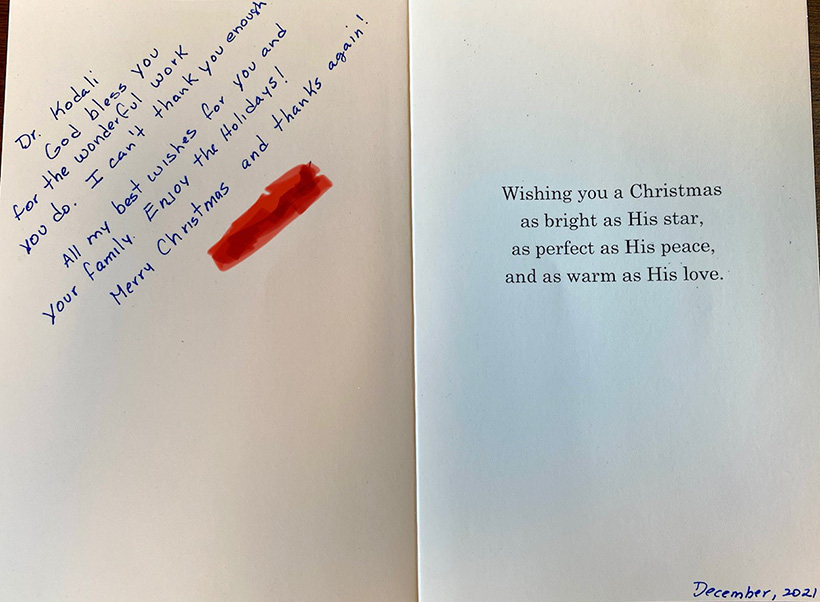 Dr. Kodali
God bless you
for the wonderful work
you do. I can't thank you enough
All my best wishes for you and
your family. Enjoy the Holidays!
Merry Christmas and thanks again!
Wishing you a Christmas
as bright as His star,
as perfect as His peace,
and as warm as His love.
December, 2021